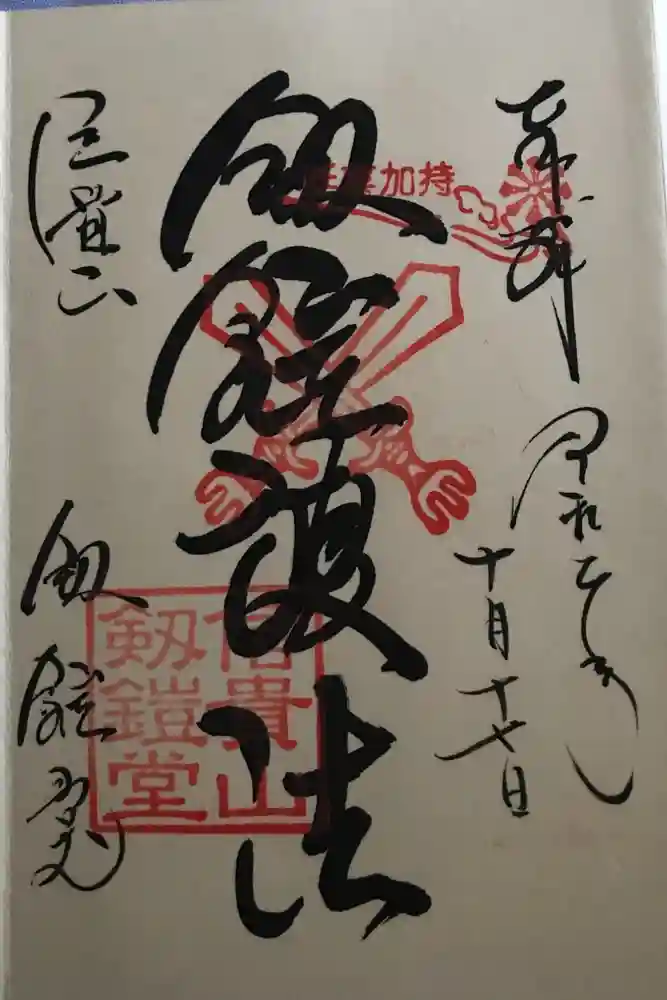 奉拝
令和元年
十月十七日
剱鎧護法
信貴山
剱鎧堂
信貴山
剱鎧堂